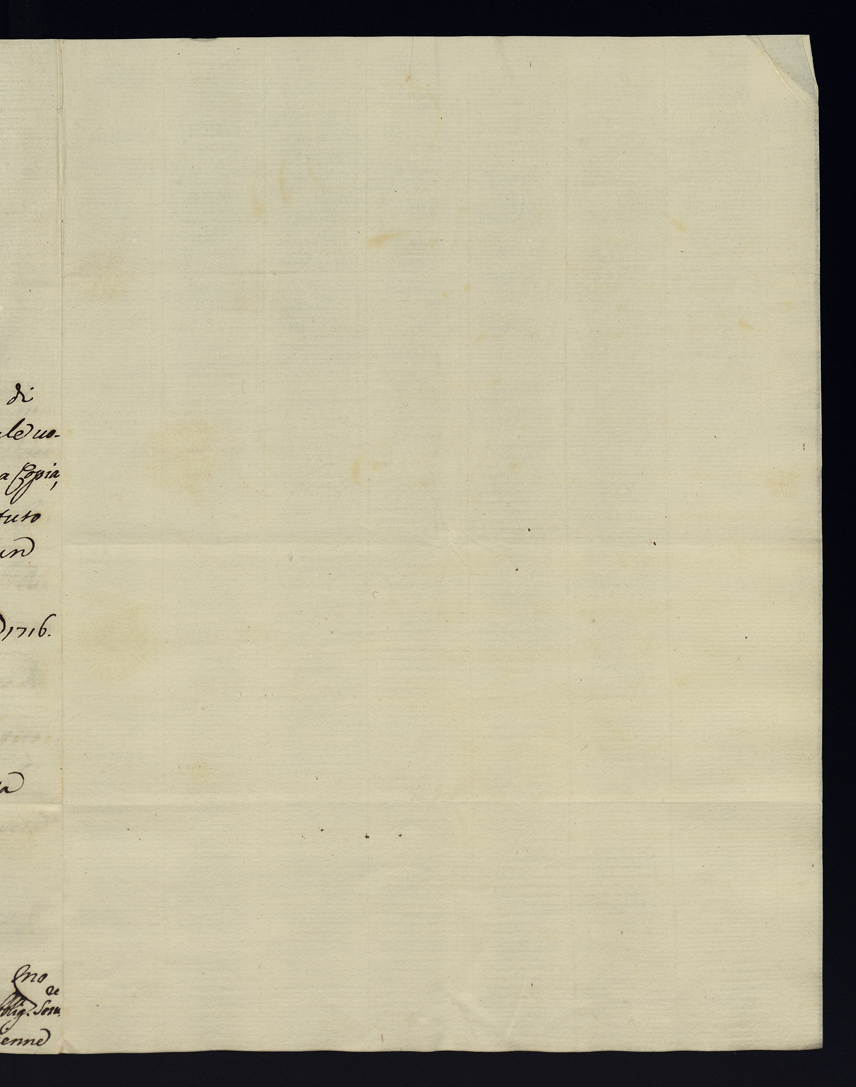 di
ale uo-
a Copia,
tuto
un
1716.
a
mo
Oblig. Seru.re
enne